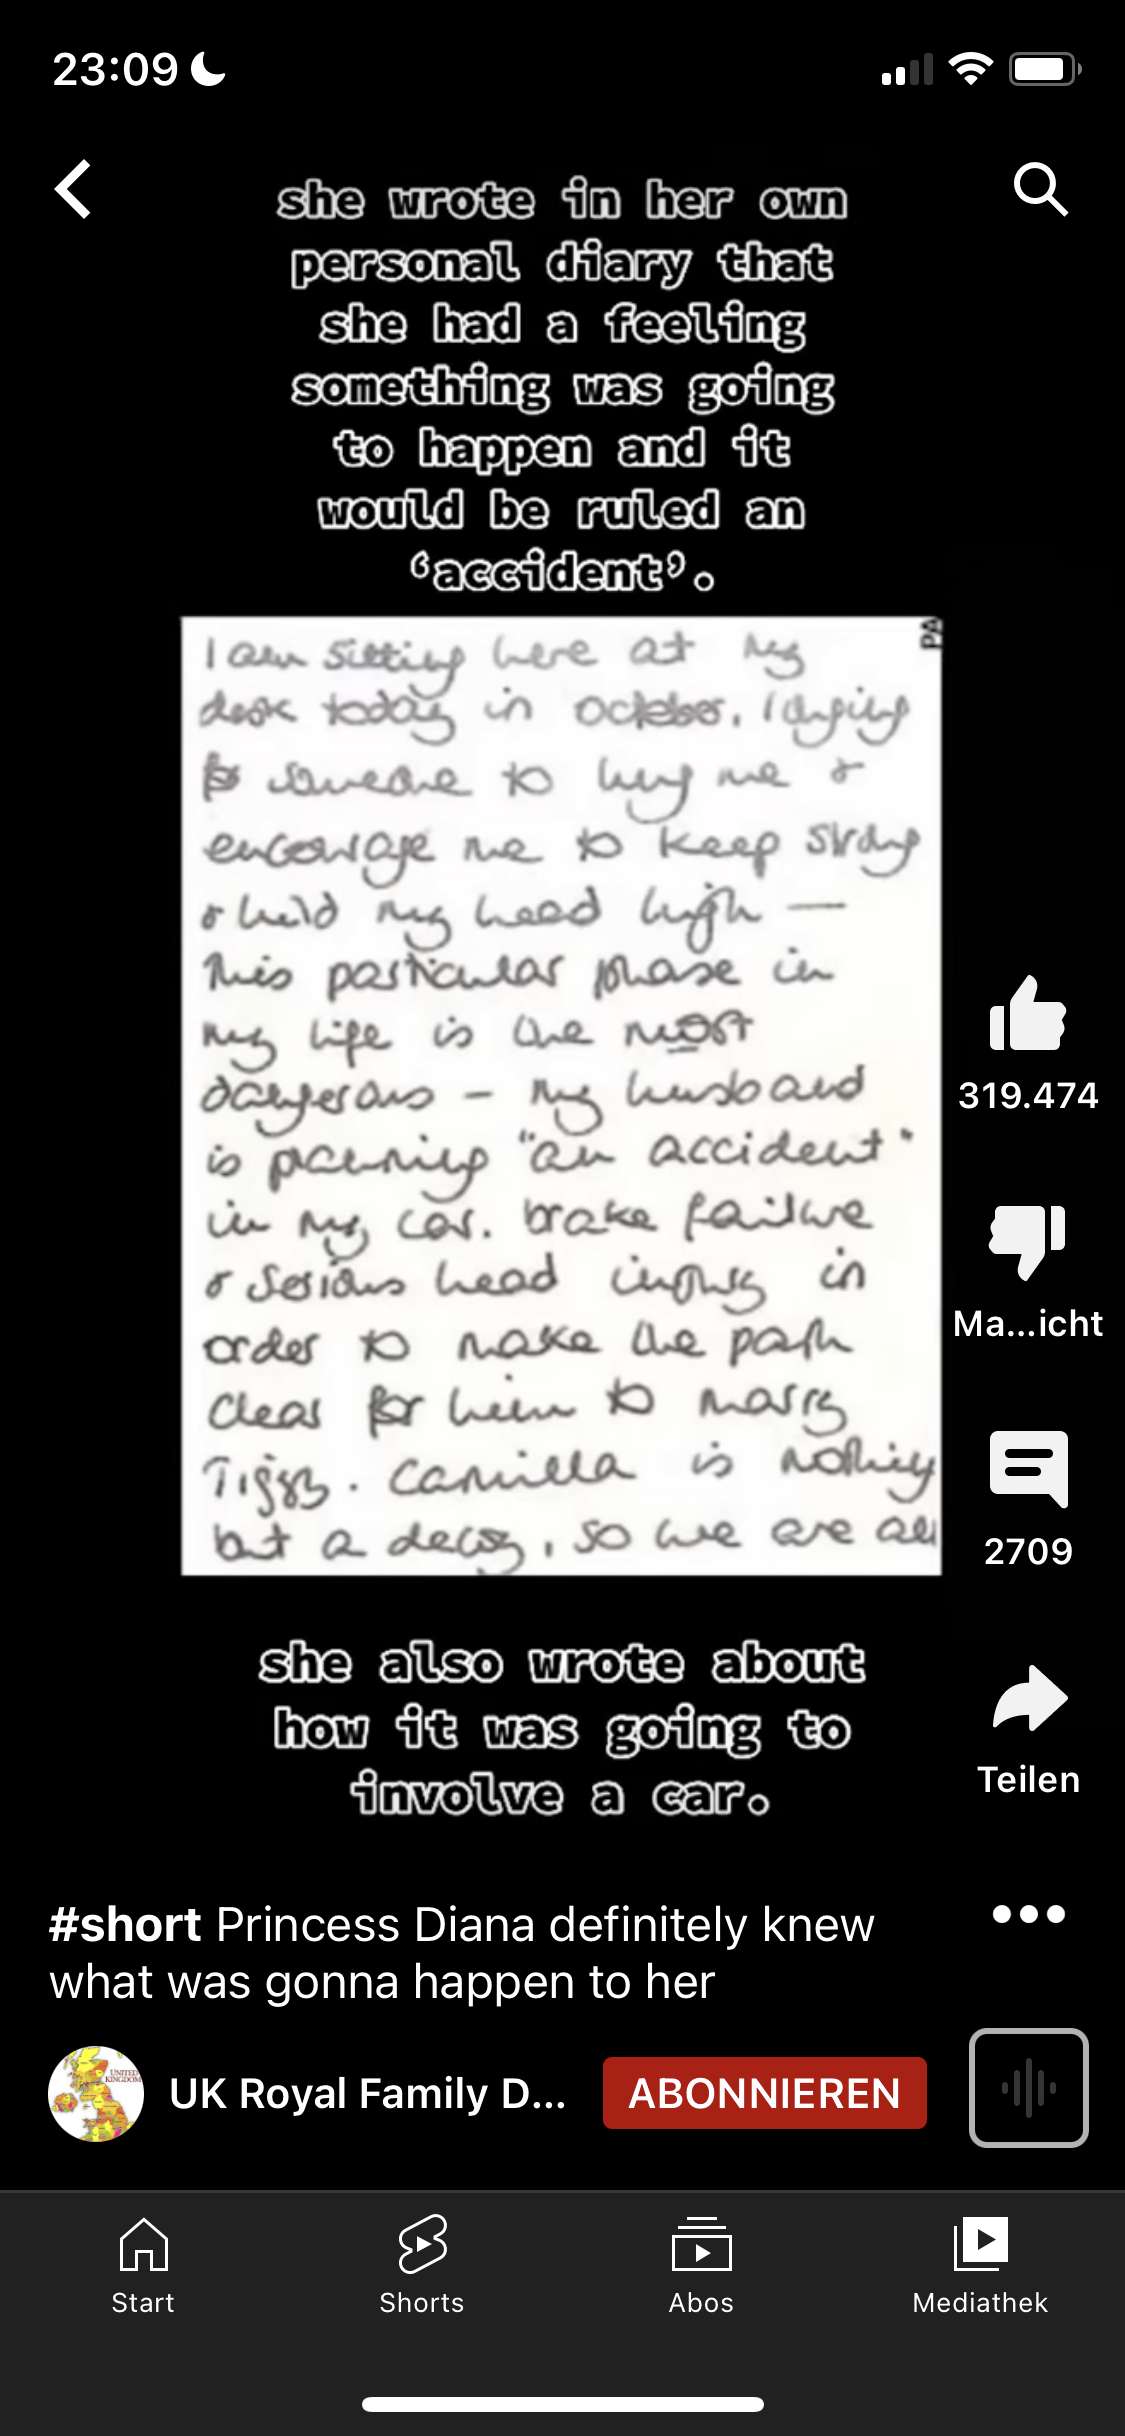 23:09
she wrote in her own
personal diary that
she had a feeling
something was going
to happen and it
would be ruled an
‘accident’.
PA
I am sitting here at my
desk today in october, longing
for someone to hug me &
encourage me to keep strong
& hold my head high —
This particular phase in
my life is the most
dangerous – my husband
is planning "an accident"
in my car. brake failure
& serious head injury in
order to make the path
clear for him to marry
Tiggy. Camilla is nothing
but a decoy, so we are all
319.474
Ma...icht
2709
she also wrote about
how it was going to
involve a car.
Teilen
#short Princess Diana definitely knew
what was gonna happen to her
UNITED
KINGDOM
UK Royal Family D...
ABONNIEREN
Start
Shorts
Abos
Mediathek